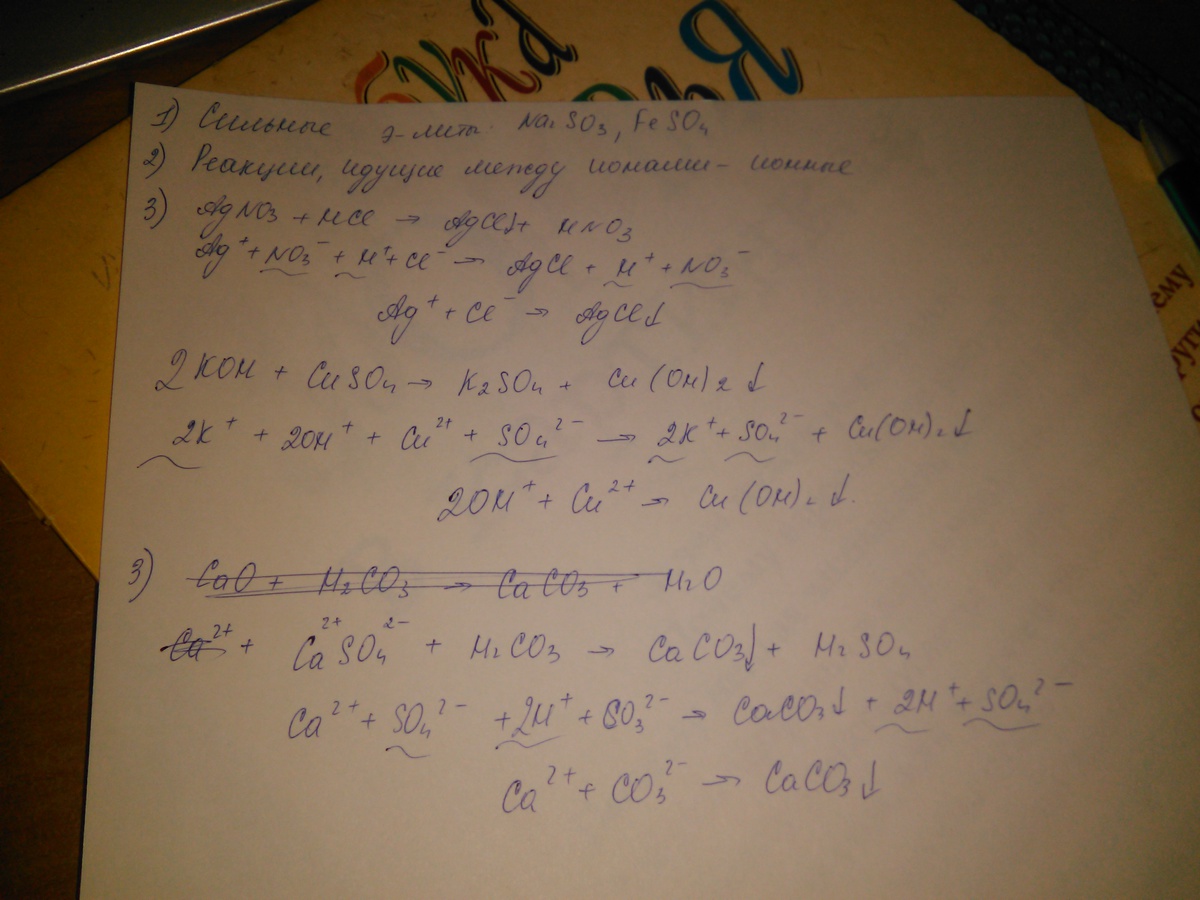 ука
рья
1) Сильные э-литы Na₂SO₃, FeSO₄
2) Реакции, идущие между ионами - ионные
3) AgNO₃ + HCl → AgCl↓ + HNO₃
Ag⁺ + NO₃⁻ + H⁺ + Cl⁻ → AgCl + H⁺ + NO₃⁻
Ag⁺ + Cl⁻ → AgCl↓
2KOH + CuSO₄ → K₂SO₄ + Cu(OH)₂↓
2K⁺ + 2OH⁺ + Cu²⁺ + SO₄²⁻ → 2K⁺ + SO₄²⁻ + Cu(OH)₂↓
2OH⁺ + Cu²⁺ → Cu(OH)₂↓.
3) CaO + H₂CO₃ → CaCO₃ + H₂O
Ca²⁺ + Ca²⁺SO₄²⁻ + H₂CO₃ → CaCO₃↓ + H₂SO₄
Ca²⁺ + SO₄²⁻ + 2H⁺ + CO₃²⁻ → CaCO₃↓ + 2H⁺ + SO₄²⁻
Ca²⁺ + CO₃²⁻ → CaCO₃↓
ему